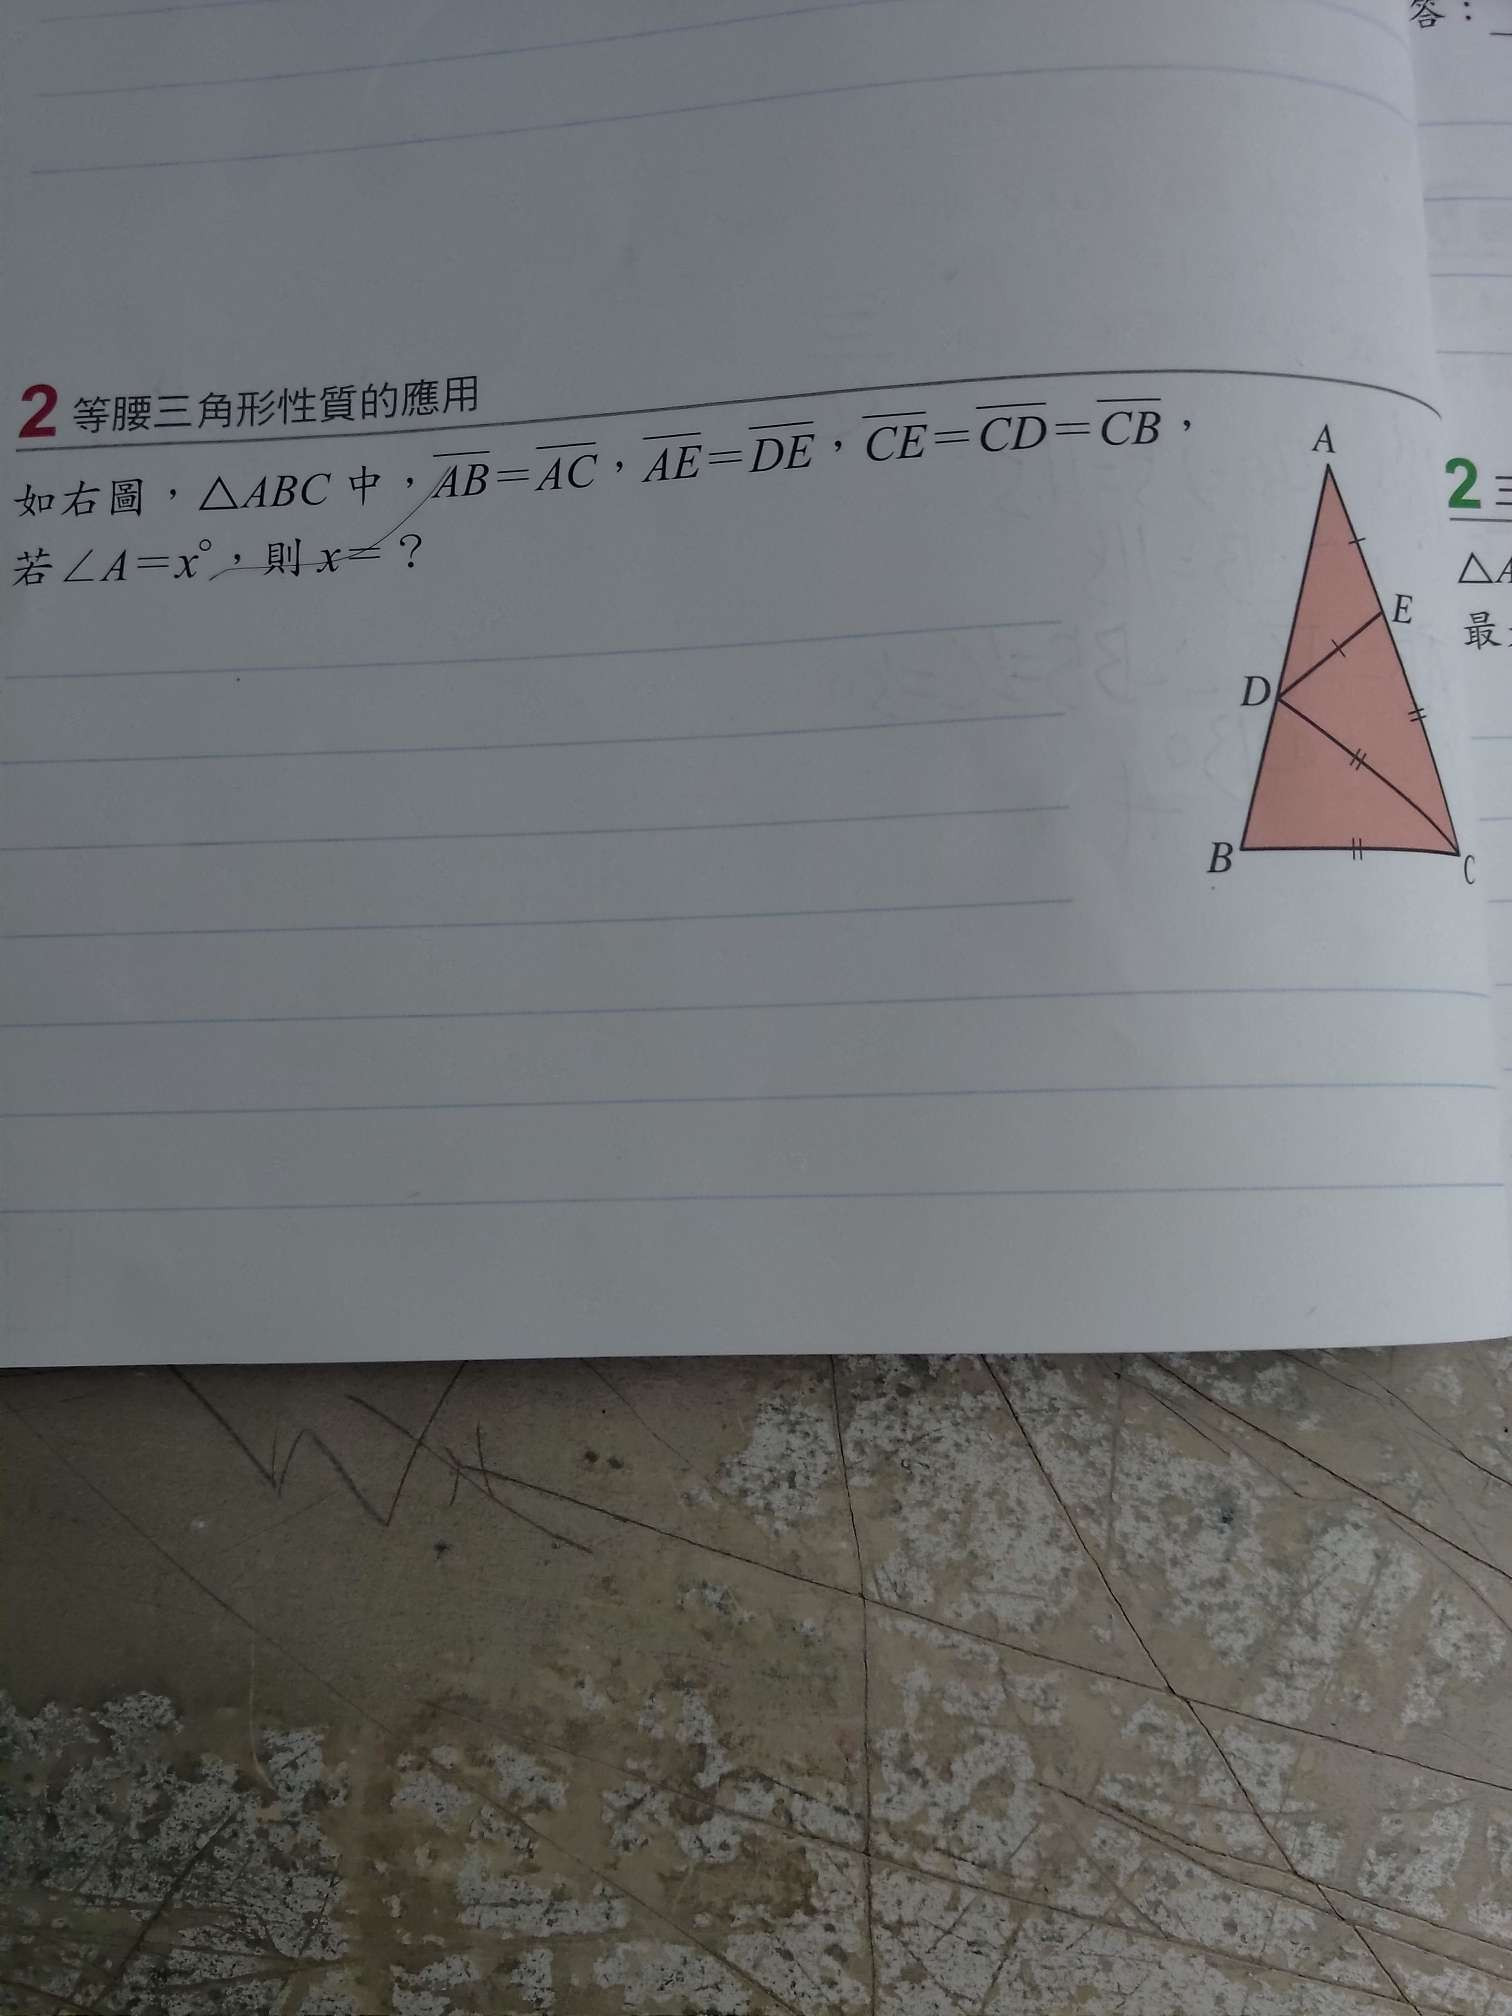 答：
2 等腰三角形性質的應用
如右圖，△ABC 中，AB=AC，AE=DE，CE=CD=CB，
若∠A=x°，則 x=？
A
E
D
B
C
2 三
△A
最